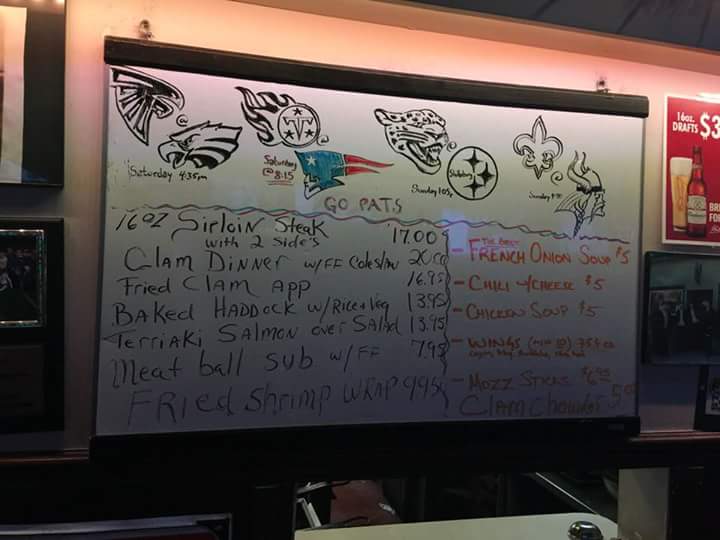 Saturday 4:35pm
Saturday
@ 8:15
Sunday 1:05
Sunday
GO PATS
16oz Sirloin Steak 17.00
with 2 Side's
Clam Dinner w/FF Coleslaw
Fried Clam App 16.95
Baked Haddock w/Rice & Veg 13.95
Terriaki Salmon over Salad 13.95
Meat ball sub w/FF 7.95
FRied Shrimp WRAP 9.95
- THE BEST
FRENCH ONION SOUP $5
- CHILI w/CHEESE $5
- CHICKEN SOUP $5
- WINGS (MIN 10) 75¢ ea
- MOZZ STICKS $6.95
Clam Chowder
16oz.
DRAFTS $3